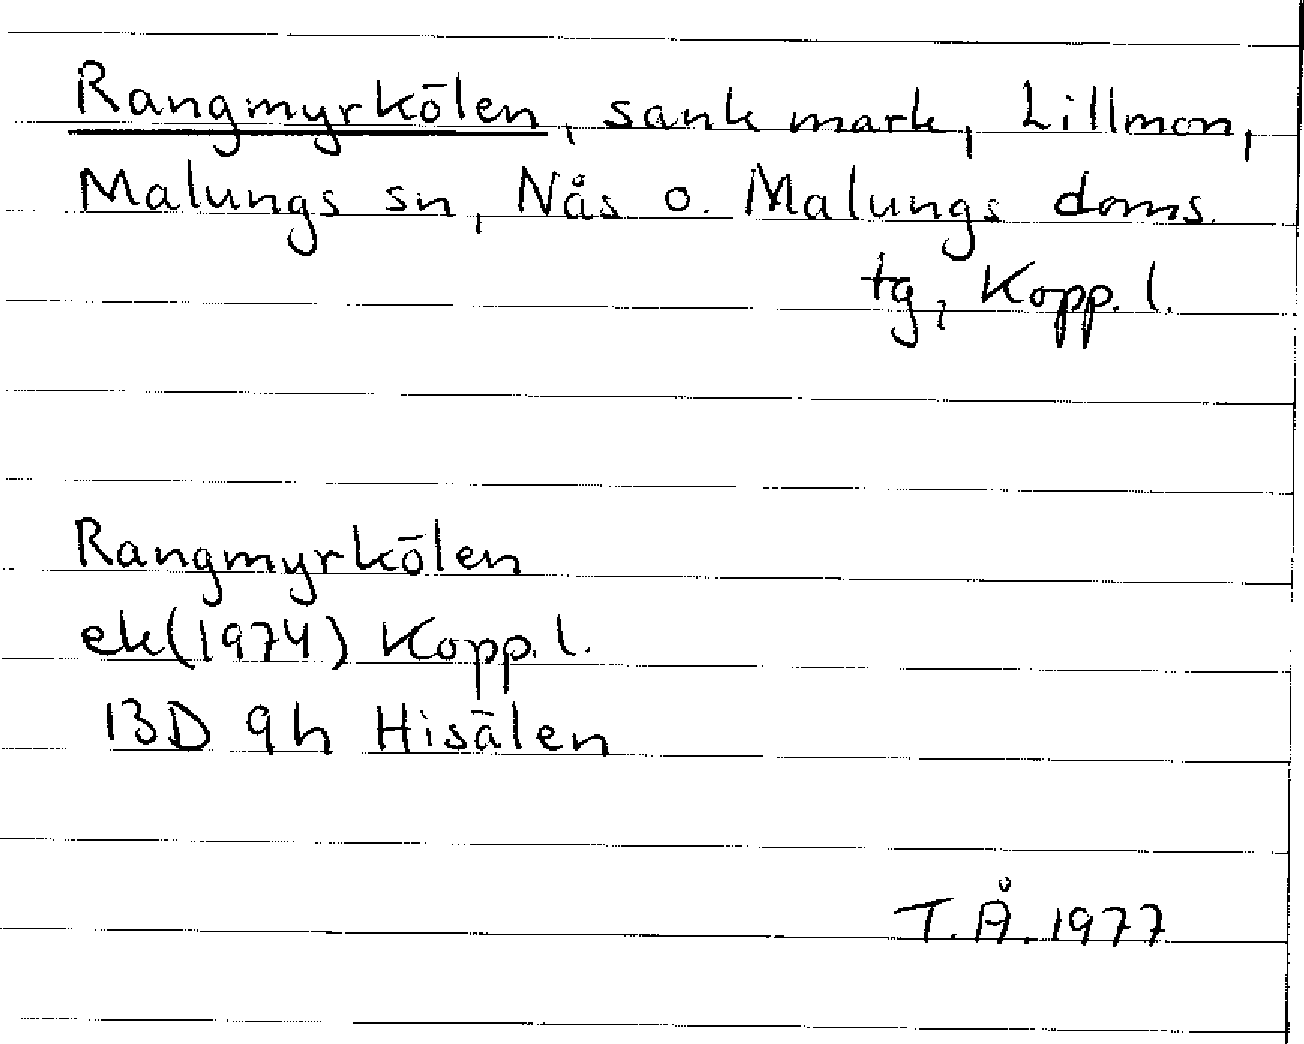 Rangmyrkölen, sank mark, Lillmon,
Malungs sn, Nås o. Malungs doms.
tg, Kopp. l.
Rangmyrkölen
ek(1974) Kopp. l.
13D 9h Hisälen
T.Å. 1977